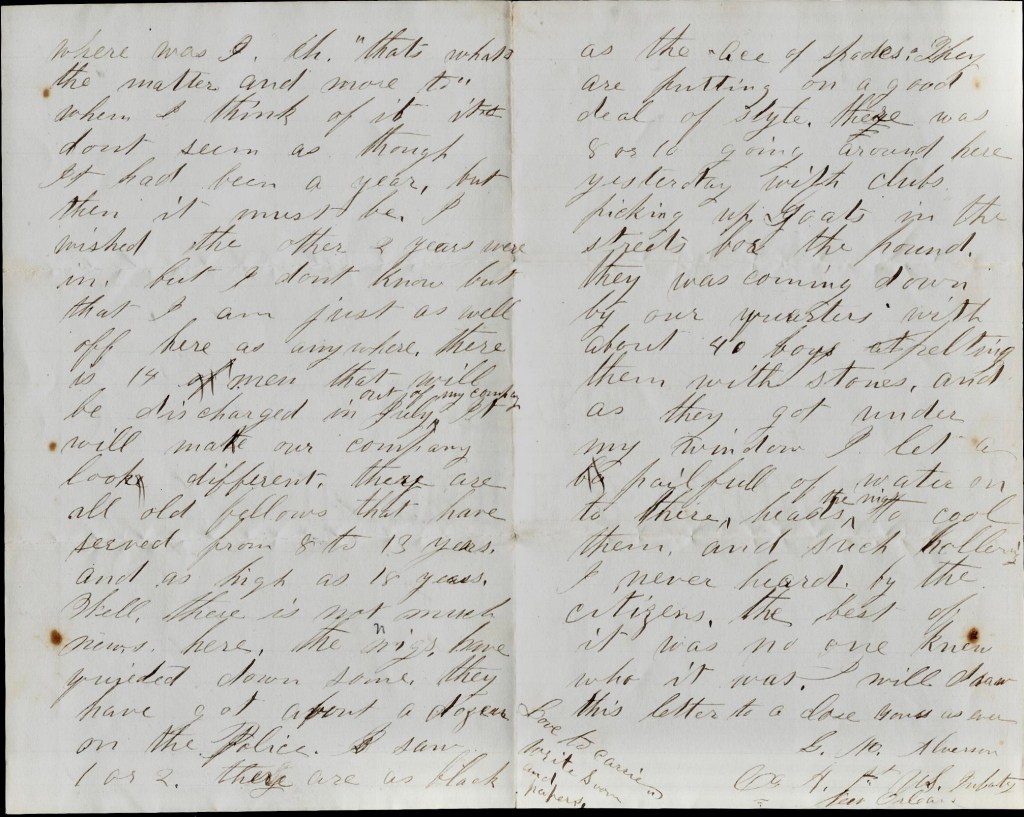 where was I. Eh. "thats whats
the matter and more to"
when I think of it it
dont seem as though
It had been a year, but
then it must be. I
wished the other 2 years were
in. but I dont know but
that I am just as well
off here as anywhere. there
is 14 men that will
be discharged in July out of my company It
will make our company
look different. there are
all old fellows that have
served from 8 to 13 years.
and as high as 18 years.
Well, there is not much
news. here, the nigs. have
quieded down some. they
have got about a dozen
on the Police. I saw
1 or 2. they are as black
as the "ace of spades". They
are putting on a good
deal of style. there was
8 or 10 going around here
yesterday with clubs
picking up goats in the
streets for the pound.
they was coming down
by our quarters with
about 40 boys pelting
them with stones, and
as they got under
my window I let a
pailfull of water on
to there heads, the nigs to cool
them. and such hollering
I never heard. by the
citizens. the best of
it was no one knew
who it was. I will draw
this letter to a close yours as ever
G. M. Alverson
Co A. 1st U.S. Infatry
New Orleans
Love to Carrie
write soon
and
papers